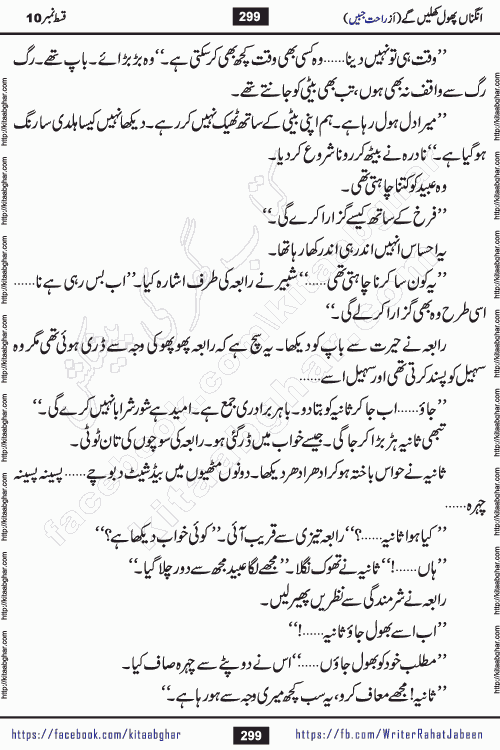 انگناں پھول کھلیں گے (از راحت جبیں) 299 قسط نمبر 10
’’وقت ہی تو نہیں دینا......وہ کسی بھی وقت کچھ بھی کر سکتی ہے۔‘‘ وہ بڑبڑائے۔ باپ تھے۔ رگ
رگ سے واقف نہ بھی ہوں، تب بھی بیٹی کو جانتے تھے۔
’’میرا دل ہول رہا ہے۔ ہم اپنی بیٹی کے ساتھ ٹھیک نہیں کر رہے۔ دیکھا نہیں کیسا ہلدی سا رنگ
ہو گیا ہے۔‘‘ نادرہ نے بیٹھ کر رونا شروع کر دیا۔
وہ عبید کو کتنا چاہتی تھی۔
’’فرخ کے ساتھ کیسے گزارا کرے گی۔‘‘
یہ احساس انہیں اندر ہی اندر کھا رہا تھا۔
’’یہ کون سا کرنا چاہتی تھی......‘‘ شبیر نے رابعہ کی طرف اشارہ کیا۔ ’’اب بس رہی ہے نا......
اسی طرح وہ بھی گزارا کر لے گی۔‘‘
رابعہ نے حیرت سے باپ کو دیکھا۔ یہ سچ ہے کہ رابعہ پھوپھو کی وجہ سے ڈری ہوئی تھی مگر وہ
سہیل کو پسند کرتی تھی اور سہیل اسے......
’’جاؤ......اب جا کر ثانیہ کو بتا دو۔ باہر برادری جمع ہے۔ امید ہے شور شرابا نہیں کرے گی۔‘‘
تبھی ثانیہ ہڑبڑا کر جاگی۔ جیسے خواب میں ڈر گئی ہو۔ رابعہ کی سوچوں کی تان ٹوٹی۔
ثانیہ نے حواس باختہ ہو کر ادھر ادھر دیکھا۔ دونوں مٹھیوں میں بیڈ شیٹ دبوچے......پسینہ پسینہ
چہرہ......
’’کیا ہوا ثانیہ......؟‘‘ رابعہ تیزی سے قریب آئی۔ ’’کوئی خواب دیکھا ہے؟‘‘
’’ہاں......!‘‘ ثانیہ نے تھوک نگلا۔ ’’مجھے لگا عبید مجھ سے دور چلا گیا۔‘‘
رابعہ نے شرمندگی سے نظریں پھیر لیں۔
’’اب اسے بھول جاؤ ثانیہ......!‘‘
’’مطلب خود کو بھول جاؤں......‘‘ اس نے دوپٹے سے چہرہ صاف کیا۔
’’ثانیہ! مجھے معاف کر دو، یہ سب کچھ میری وجہ سے ہو رہا ہے۔‘‘
http://kitaabghar.com http://kitaabghar.com http://kitaabghar.com http://kitaabghar.com http://kitaabghar.com http://kitaabghar.com
http://kitaabghar.com http://kitaabghar.com http://kitaabghar.com http://kitaabghar.com http://kitaabghar.com http://kitaabghar.com
کتاب گھر کی پیشکش
facebook.com/kitaabghar
kitaabghar.com
https://facebook.com/kitaabghar 299 https://fb.com/WriterRahatJabeen